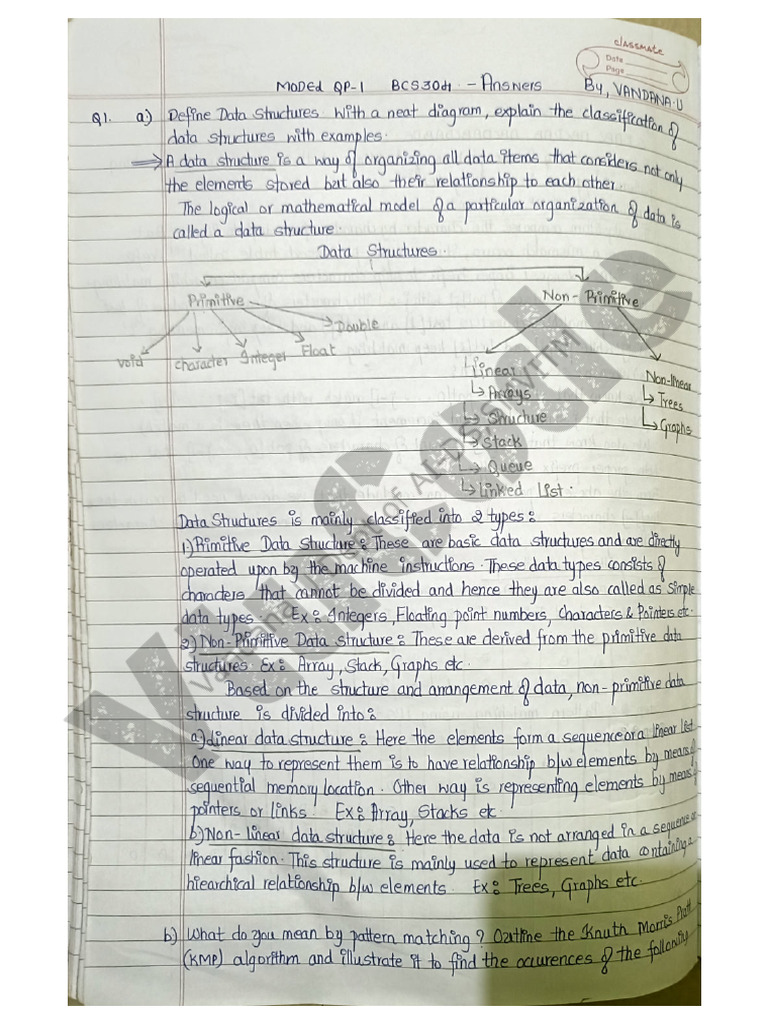 classmate
Date
Page
MODEL QP-1 BCS304 - Answers By, VANDANA.U
Q1. a) Define Data Structures with a neat diagram, explain the classification of
data structures with examples.
⇒ A data structure is a way of organizing all data items that considers not only
the elements stored but also their relationship to each other.
The logical or mathematical model of a particular organization of data is
called a data structure.
Data Structures.
Primitive Non-Primitive
void character Integer Float Double
Linear
↳ Arrays
↳ Structure
↳ Stack
↳ Queue
↳ Linked List.
Non-linear
↳ Trees
↳ Graphs
Data Structures is mainly classified into 2 types:
1) Primitive Data Structure: These are basic data structures and are directly
operated upon by the machine instructions. These data types consists of
characters that cannot be divided and hence they are also called as simple
data types. Ex: Integers, Floating point numbers, characters & Pointers etc.
2) Non-Primitive Data structure: These are derived from the primitive data
structures Ex: Array, Stack, Graphs etc.
Based on the structure and arrangement of data, non-primitive data
structure is divided into:
a) Linear data structure: Here the elements form a sequence or a linear list
One way to represent them is to have relationship b/w elements by means of
sequential memory location. Other way is representing elements by means of
pointers or links. Ex: Array, Stacks etc.
b) Non-linear data structure: Here the data is not arranged in a sequence or
linear fashion. This structure is mainly used to represent data containing a
hiearchical relationship b/w elements. Ex: Trees, Graphs etc.
b) What do you mean by pattern matching? Outline the Knuth Morris Pratt
(KMP) algorithm and illustrate it to find the ocurences of the following